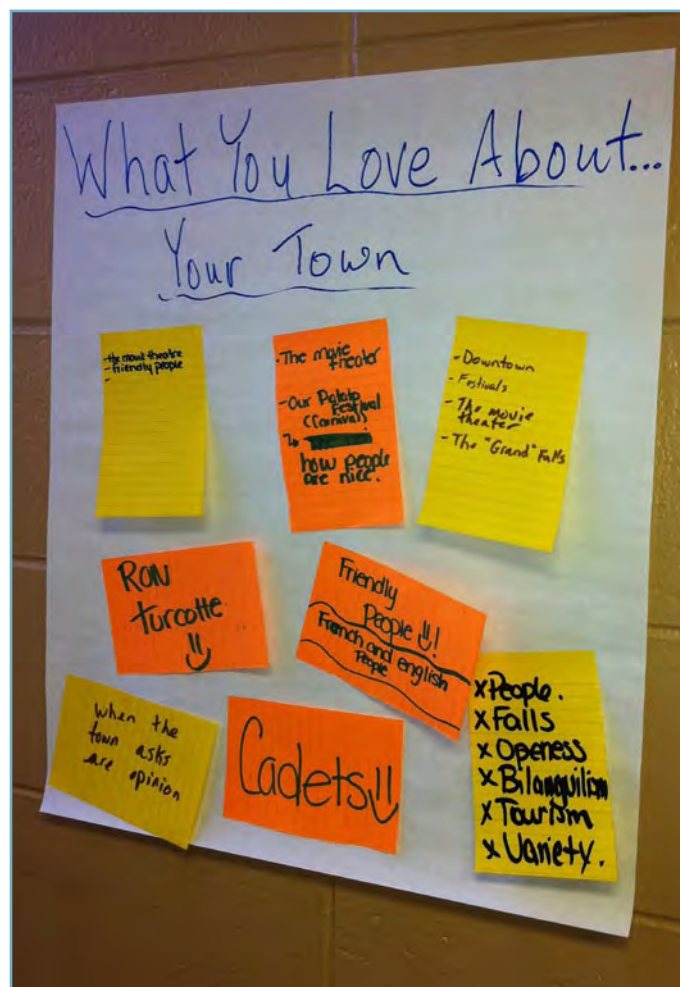 What You Love About...
Your Town
- the movie theatre
- Friendly people
-
- The movie
theater
- Our Potato
Festival
(Carnival)
how people
are nice.
- Downtown
- Festivals
- The movie
theater
- The "Grand" Falls
RON
turcotte
Friendly
People !
French and english
People
when the
town asks
are opinion
Cadets
x People.
x Falls
x Openess
x Bilanguilism
x Tourism
x Variety.